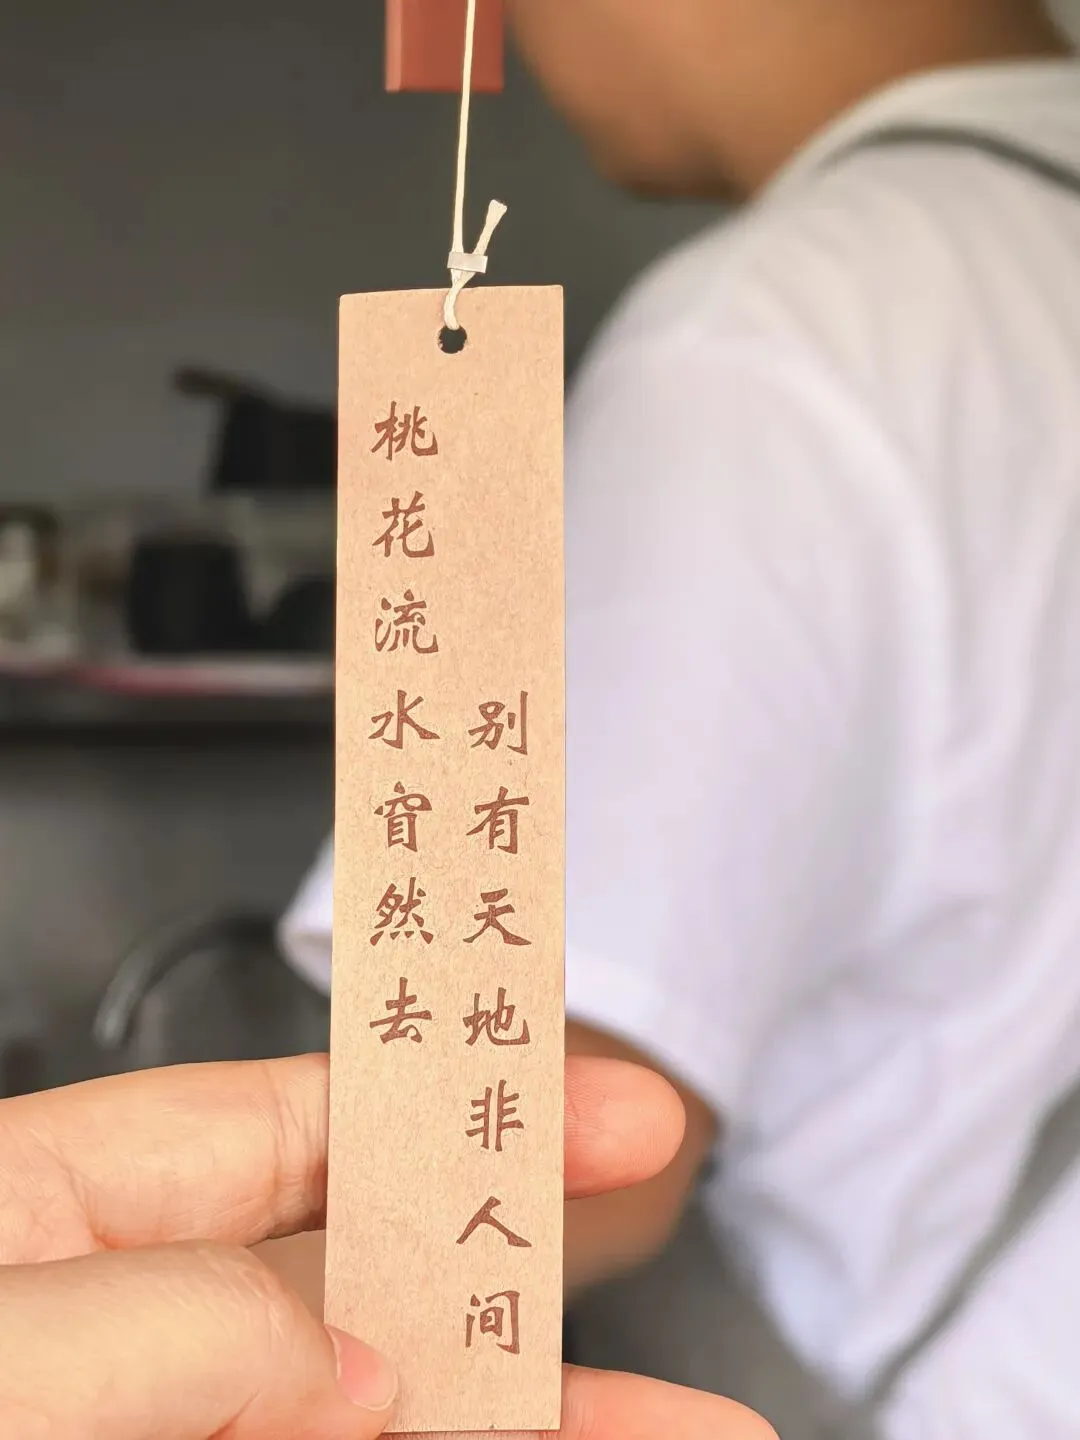 桃花流水窅然去
别有天地非人间